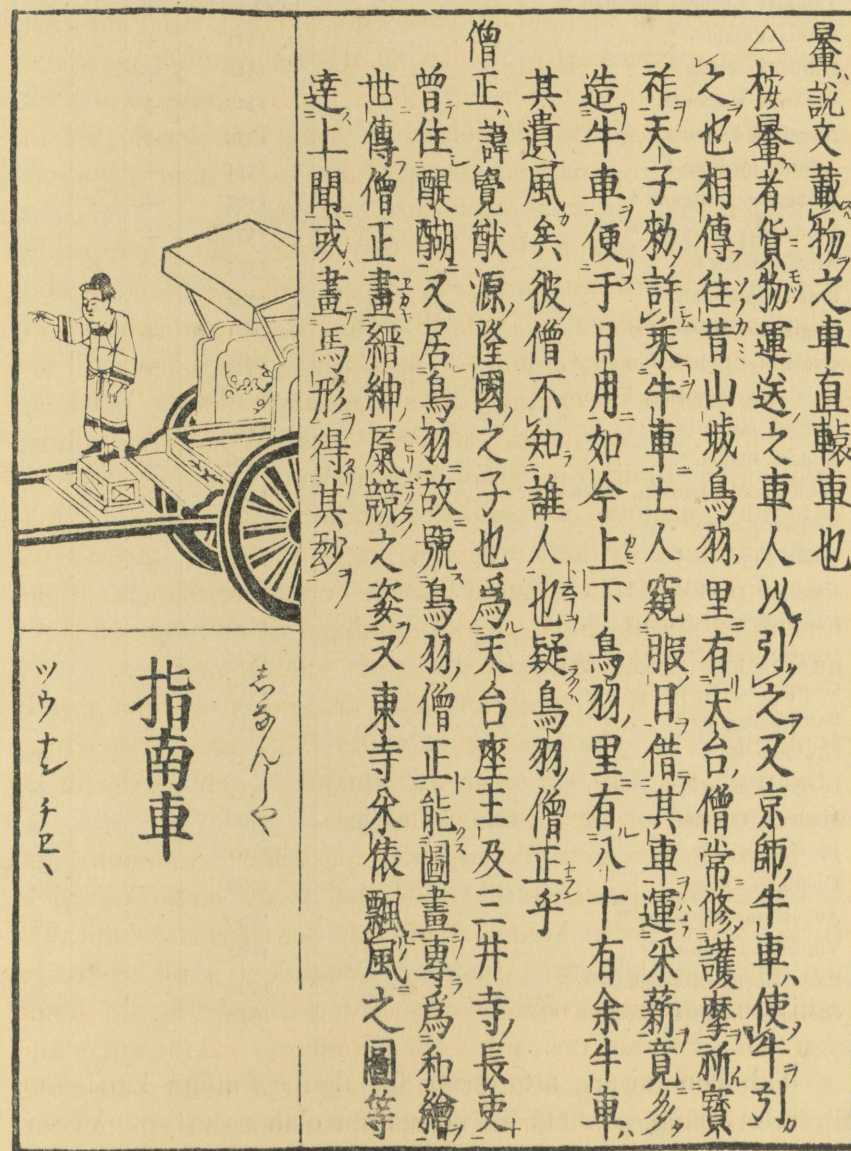 轝ハ說文載物ヲ之車直轅車也
△按轝者貨物運送之車人以引之又京師牛車ハ使牛引
之也相傳往昔山城鳥羽里有天台僧常修護摩祈寳
祚天子勑許乘牛車土人窺暇日借其車運米薪竟多
造牛車便于日用如今上下鳥羽里有八十有余牛車
其遺風矣彼僧不知誰人也疑鳥羽僧正乎
僧正諱覺猷源隆國之子也爲天台座主及三井寺長吏
曾住醍醐又居鳥羽故號鳥羽僧正能圖畫專爲和繪
世傳僧正畫縉紳屓競之姿又東寺米俵飄風之圖等
達上聞或畫馬形得其玅
しなんしや
指南車
ツウ ナン チヱヽ